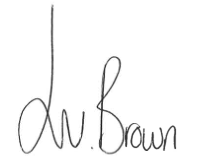 Lw. Brown